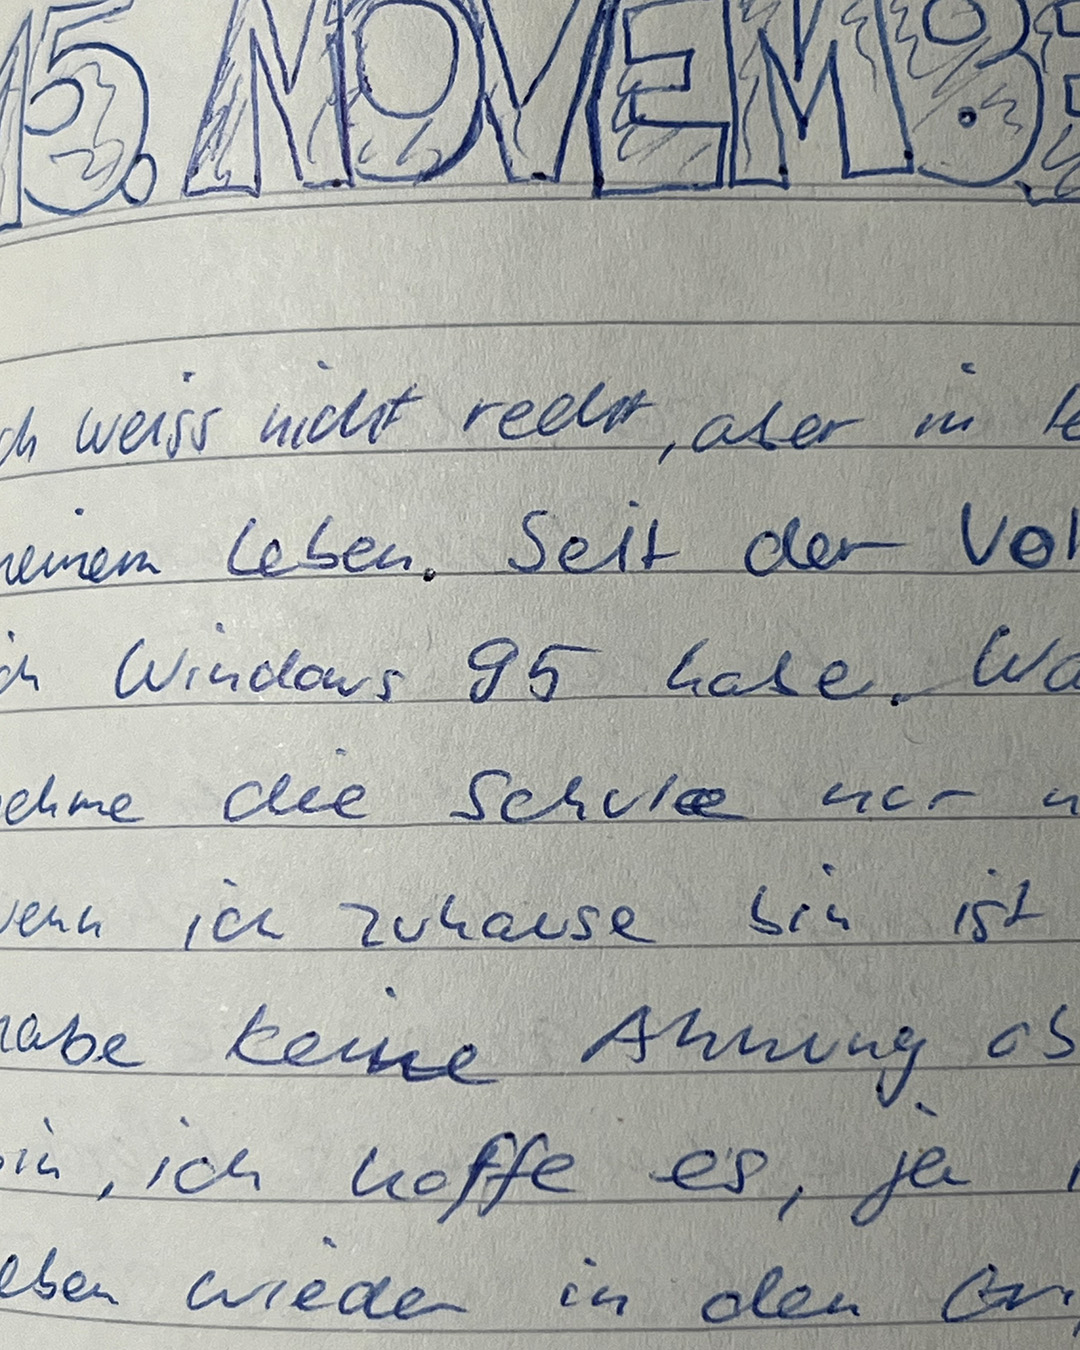 15. NOVEMBE
ch weiss nicht recht, aber in
meinem Leben. Seit der Vol
ich Windows 95 habe. Wa
ehme die Schule nur
wenn ich zuhause bin ist
habe keine Ahnung ob
bin, ich hoffe es, ja
eben wieder in den